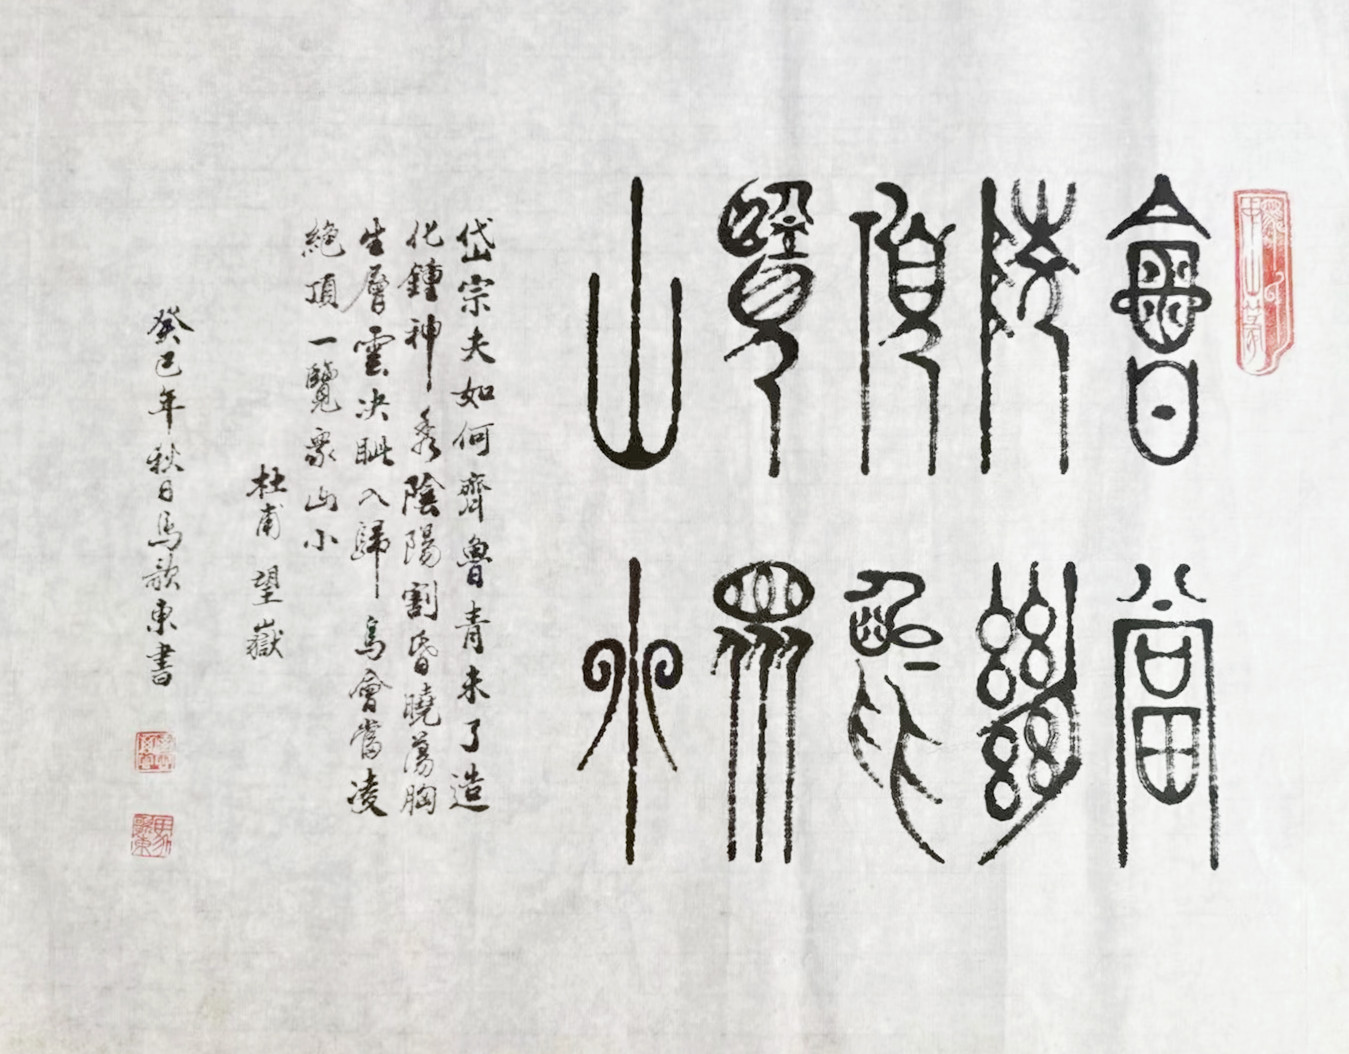 會當
陵絕
頂一
覽眾
山小
岱宗夫如何齊魯青未了造
化鍾神秀陰陽割昏曉蕩胸
生層雲決眦入歸鳥會當凌
絶頂一覽衆山小
杜甫 望嶽
癸巳年秋日馬歌東書
馬歌東